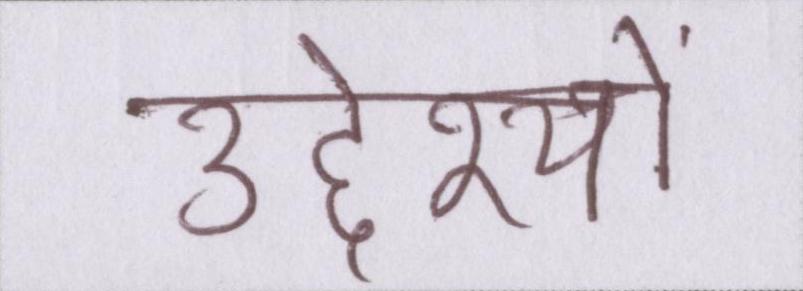 उद्देश्यों